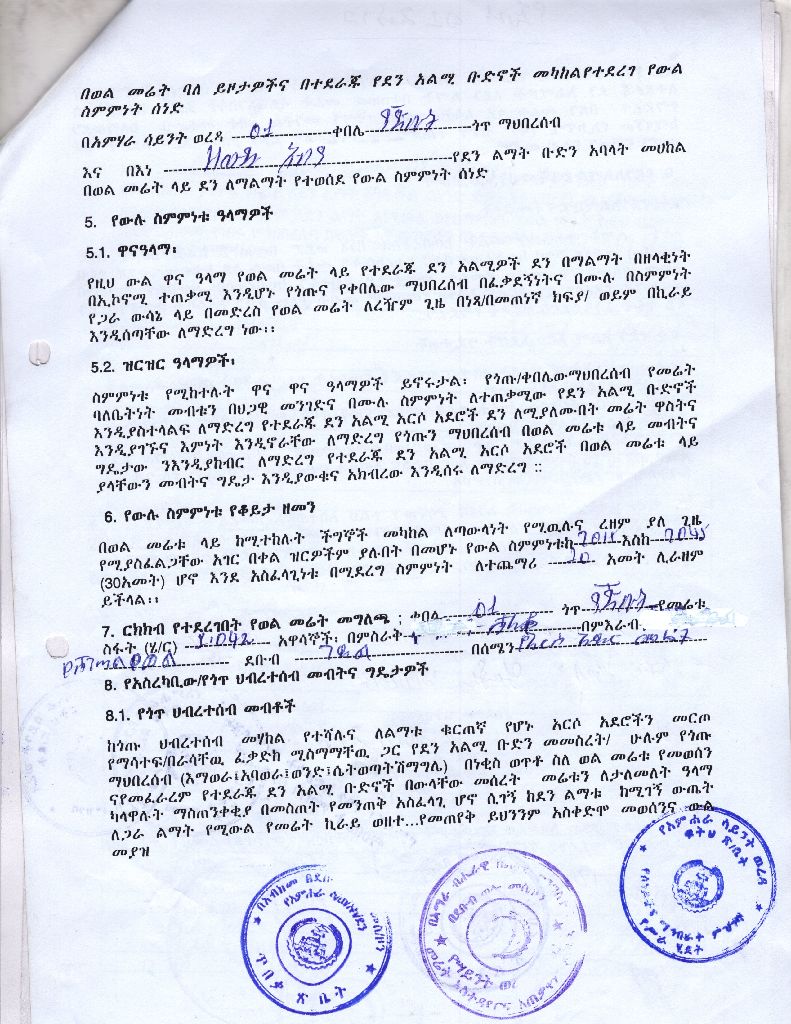 በወል መሬት ባለ ይዞታዎችና በተደራጁ የደን አልሚ ቡድኖች መካከልየተደረገ የውል
ስምምነት ሰነድ
በአምሃራ ሳይንት ወረዳ 01 ቀበሌ ጎጥ ማህበረሰብ
እና በእነ የደን ልማት ቡድን አባላት መሀከል
በወል መሬት ላይ ደን ለማልማት የተወሰደ የውል ስምምነት ሰነድ
5. የውሉ ስምምነቱ ዓላማዎች
5.1. ዋናዓላማ፡
የዚህ ውል ዋና ዓላማ የወል መሬት ላይ የተደራጁ ደን አልሚዎች ደን በማልማት በዘላቂነት
በኢኮኖሚ ተጠቃሚ እንዲሆኑ የጎጡና የቀበሌው ማህበረሰብ በፈቃደኝነትና በሙሉ በስምምነት
የጋራ ውሳኔ ላይ በመድረስ የወል መሬት ለረዥም ጊዜ በነጻ/በመጠነኛ ክፍያ/ ወይም በኪራይ
እንዲሰጣቸው ለማድረግ ነው፡፡
5.2. ዝርዝር ዓላማዎች፡
ስምምነቱ የሚከተሉት ዋና ዋና ዓላማዎች ይኖሩታል፡ የጎጡ/ቀበሌውማህበረሰብ የመሬት
ባለቤትነት መብቱን በህጋዊ መንገድና በሙሉ ስምምነት ለተጠቃሚው የደን አልሚ ቡድኖች
እንዲያስተላልፍ ለማድረግ የተደራጁ ደን አልሚ አርሶ አደሮች ደን ለሚያለሙበት መሬት ዋስትና
እንዲያገኙና እምነት እንዲኖራቸው ለማድረግ የጎጡን ማህበረሰብ በወል መሬቱ ላይ መብትና
ግዴታው ንእንዲያከብር ለማድረግ የተደራጁ ደን አልሚ አርሶ አደሮች በወል መሬቱ ላይ
ያላቸውን መብትና ግዴታ እንዲያውቁና አክብረው እንዲሰሩ ለማድረግ ::
6. የውሉ ስምምነቱ የቆይታ ዘመን
በወል መሬቱ ላይ ከሚተከሉት ችግኞች መካከል ለጣውላነት የሚዉሉና ረዘም ያለ ጊዜ
የሚያስፈልጋቸው አገር በቀል ዝርዎችም ያሉበት በመሆኑ የውል ስምምነቱከ እስከ
(30አመት) ሆኖ እንደ አስፈላጊነቱ በሚደረግ ስምምነት ለተጨማሪ አመት ሊራዘም
ይችላል፡፡
7. ርክክብ የተደረገበት የወል መሬት መግለጫ ; ቀበሌ 01 ጎጥ የመሬቱ
ስፋት (ሄ/ር) አዋሳኞች፡ በምስራቅ በምእራብ
ደቡብ ገደል በሰሜን
8. የአስረካቢው/የጎጥ ህብረተሰብ መብትና ግዴታዎች
8.1. የጎጥ ህብረተሰብ መብቶች
ከጎጡ ህብረተሰብ መሃከል የተሻሉና ለልማቱ ቁርጠኛ የሆኑ አርሶ አደሮችን መርጦ
የማሳተፍ/በራሳቸዉ ፈቃድከ ሚስማማቸዉ ጋር የደን አልሚ ቡድን መመስረት/ ሁሉም የጎጡ
ማህበረሰብ (እማወራ፤አባወራ፤ወንድ፤ሴትወጣትሽማግሌ) በነቂስ ወጥቶ ስለ ወል መሬቱ የመወሰን
ናየመፈራረም የተደራጁ ደን አልሚ ቡድኖች በውላቸው መሰረት መሬቱን ለታለመለት ዓላማ
ካላዋሉት ማስጠንቀቂያ በመስጠት የመንጠቅ አስፈላጊ ሆኖ ሲገኝ ከደን ልማቱ ከሚገኝ ውጤት
ለጋራ ልማት የሚውል የመሬት ኪራይ ወዘተ...የመጠየቅ ይህንንም አስቀድሞ መወሰንና ውል
መያዝ